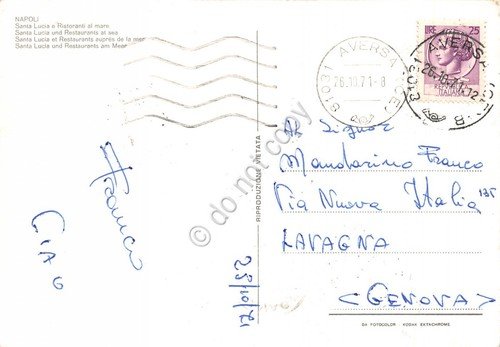 NAPOLI
Santa Lucia e Ristoranti al mare
Santa Lucia und Restaurants at sea
Santa Lucia et Restaurants auprès de la mer
Santa Lucia und Restaurants am Meer
Franco
CIAO
25/10/71
RIPRODUZIONE VIETATA
do not copy
81031 AVERSA (CE)
26.10.71-8
81031 AVERSA (CE)
26.10.71.12
25
ITALIANA
Al Signor
Mandarino Franco
Via Nuova Italia 125
LAVAGNA
(GENOVA)
DA FOTOCOLOR KODAK EKTACHROME